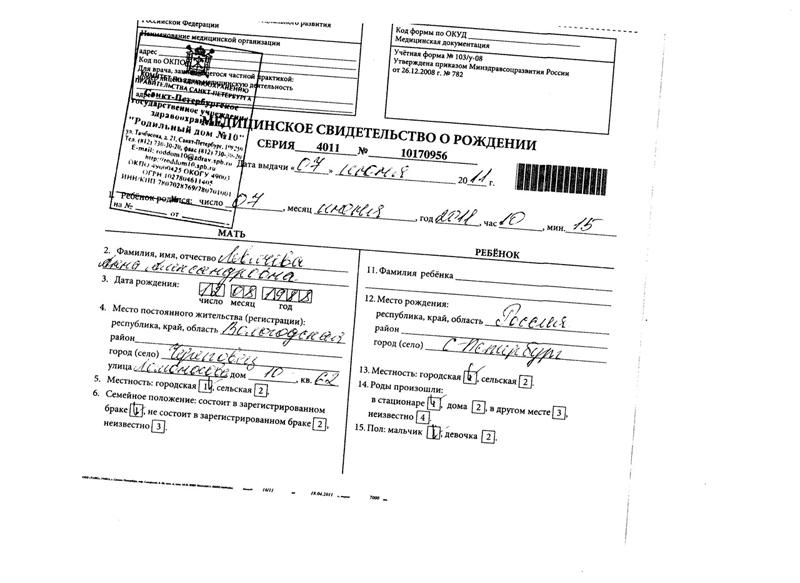 Российской Федерации
Наименование медицинской организации
адрес
Код по ОКПО
Для врача, занимающегося частной практикой:
адрес
Санкт-Петербургское
государственное учреждение
здравоохранения
"Родильный дом №10"
ул. Тамбасова, д. 21, Санкт-Петербург,
Тел. (812) 730-30-20, факс (812)
E-mail: roddom10@zdrav.spb.ru
http://roddom10.spb.ru
ОГРН 1027804611408
ИНН/КПП 7807028769/780701001
на № от
Код формы по ОКУД
Медицинская документация
Учётная форма № 103/у-08
Утверждена приказом Минздравсоцразвития России
от 26.12.2008 г. № 782
МЕДИЦИНСКОЕ СВИДЕТЕЛЬСТВО О РОЖДЕНИИ
СЕРИЯ 4011 № 10170956
Дата выдачи «07» июня 2011 г.
1. Ребёнок родился: число 07, месяц июня, год 2011, час 10, мин. 15
МАТЬ
2. Фамилия, имя, отчество
Анна Александровна
3. Дата рождения: 12 08 1988
число месяц год
4. Место постоянного жительства (регистрации):
республика, край, область Вологодская
район
город (село) Череповец
улица дом 10, кв. 62
5. Местность: городская 1, сельская 2.
6. Семейное положение: состоит в зарегистрированном
браке 1, не состоит в зарегистрированном браке 2,
неизвестно 3.
РЕБЁНОК
11. Фамилия ребёнка
12. Место рождения:
республика, край, область Россия
район
город (село) С-Петербург
13. Местность: городская, сельская 2.
14. Роды произошли:
в стационаре 1, дома 2, в другом месте 3,
неизвестно 4.
15. Пол: мальчик 1, девочка 2.
18.04.2011
7000